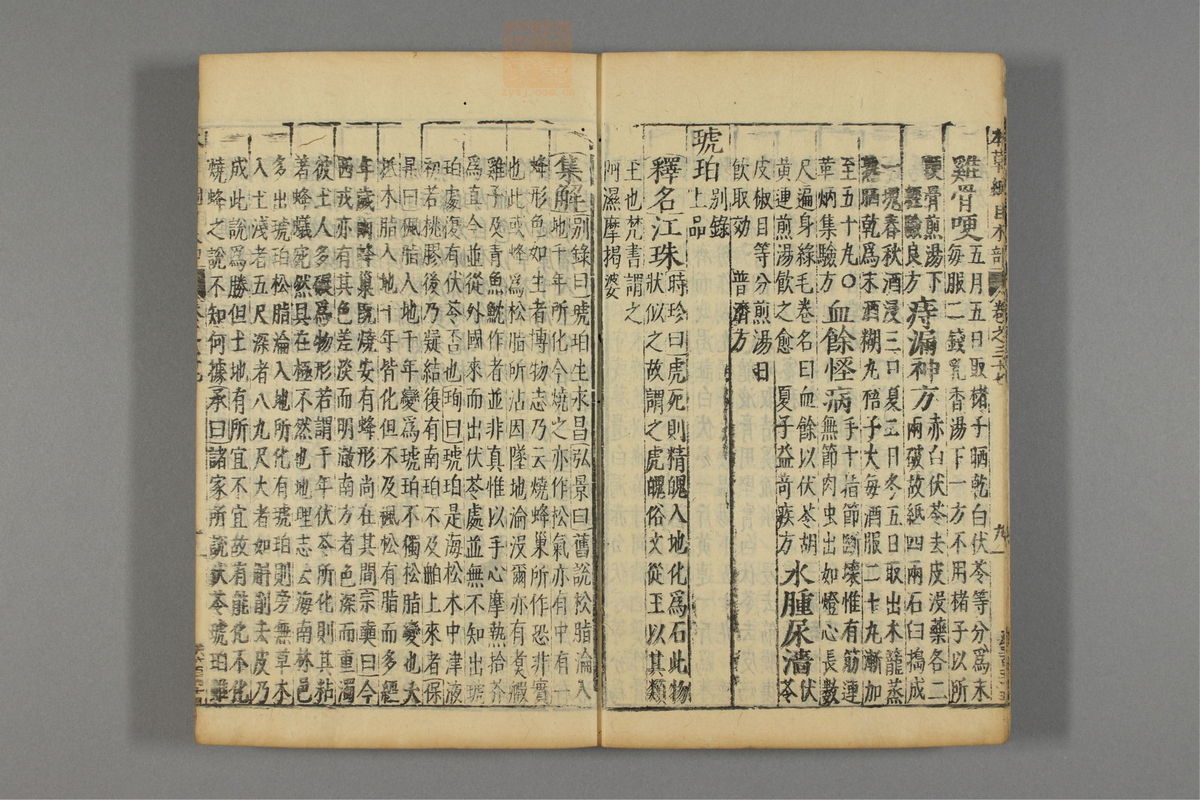 雞骨哽五月五日取楮子晒乾白伏苓等分為末
每服二錢乳香湯下一方不用楮子以所
哽骨煎湯下
經驗良方痔漏神方赤白伏苓去皮沒藥各二
兩破故紙四兩石臼搗成
一塊春秋酒浸三日夏二日冬五日取出木籠蒸
熟晒乾為末酒糊丸梧子大每酒服二十丸漸加
至五十丸○血餘怪病手十指節斷壞惟有筋連
無節肉虫出如燈心長數
華炳集驗方
尺遍身綠毛卷名曰血餘以伏苓胡
黃連煎湯飲之愈
夏子益奇疾方水腫尿濇伏
苓
皮椒目等分煎湯日
飲取効
普濟方
琥珀別錄
上品
釋名江珠時珍曰虎死則精魄入地化為石此物
狀似之故謂之虎魄俗文從玉以其類
玉也梵書謂之
阿濕摩揭婆
集解別錄曰琥珀生永昌弘景曰舊說松脂淪入
地千年所化今燒之亦作松氣亦有中有一
蜂形色如生者博物志乃云燒蜂巢所作恐非實
也此或蜂為松脂所沾因墜地淪沒爾亦有煮毈
雞子及青魚魫作者並非真惟以手心摩熱拾芥
為真今並從外國來而出伏苓處並無不知出琥
珀處復有伏苓否也珣曰琥珀是海松木中津液
初若桃膠後乃凝結復有南珀不及舶上來者保
昇曰楓脂入地千年變為琥珀不獨松脂變也大
抵木脂入地千年皆化但不及楓松有脂而多經
年歲爾蜂巢既燒安有蜂形尚在其間宗奭曰今
西戎亦有其色差淡而明澈南方者色深而重濁
彼土人多碾為物形若謂千年伏苓所化則其粘
著蜂蟻宛然具在極不然也地理志云海南林邑
多出琥珀松脂淪入地所化有琥珀則旁無草木
入土淺者五尺深者八九尺大者如斛削去皮乃
成此說為勝但土地有所宜不宜故有能化不化
燒蜂之說不知何據承曰諸家所說伏苓琥珀雖